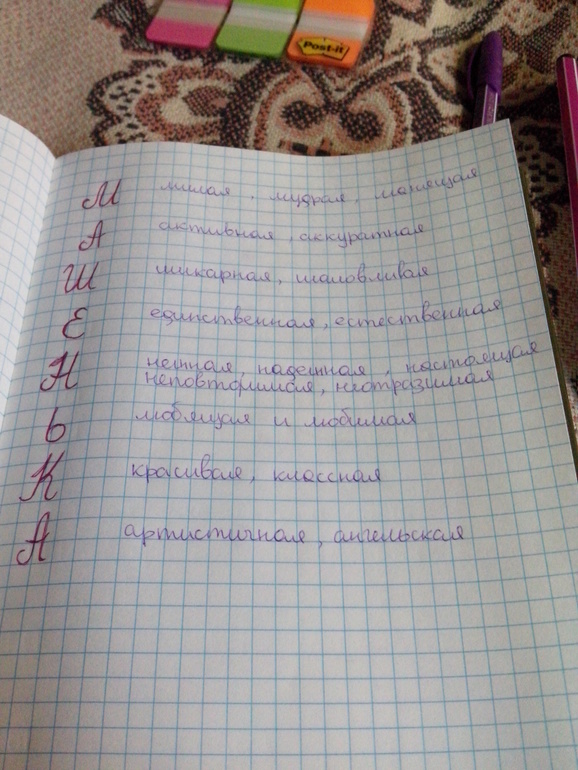 Post-it
М милая, мудрая, манящая
А активная, аккуратная
Ш шикарная, шаловливая
Е единственная, естественная
Н нежная, надежная, настоящая
неповторимая, неотразимая
Ь любящая и любимая
К красивая, классная
А артистичная, ангельская